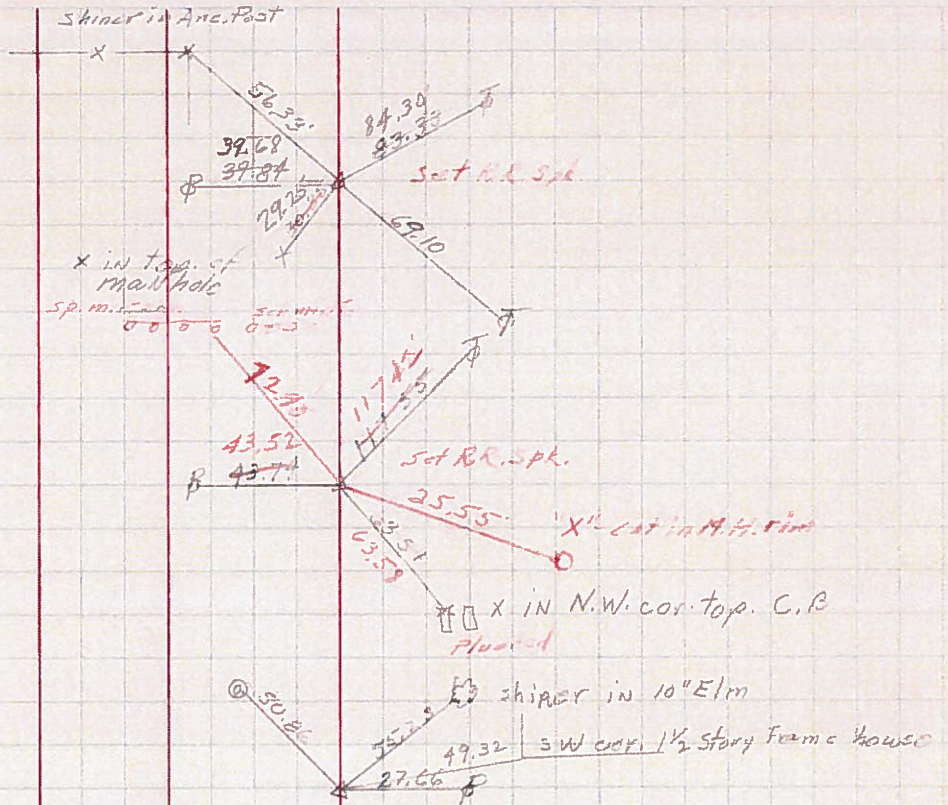 Shiner in Anc. Post
56.33
84.39
83.33
39.68
39.84
Set R.R. Spk.
29.25
69.10
X in top of
manhole
72.93
117.45
43.52
43.71
Set R.R. Spk.
25.55
"X" cut in M.H. rim
63.51
63.59
X IN N.W. cor. top. C.B
Plugged
50.86
shiner in 10" Elm
49.32
SW cor. 1½ Story Frame house
27.66